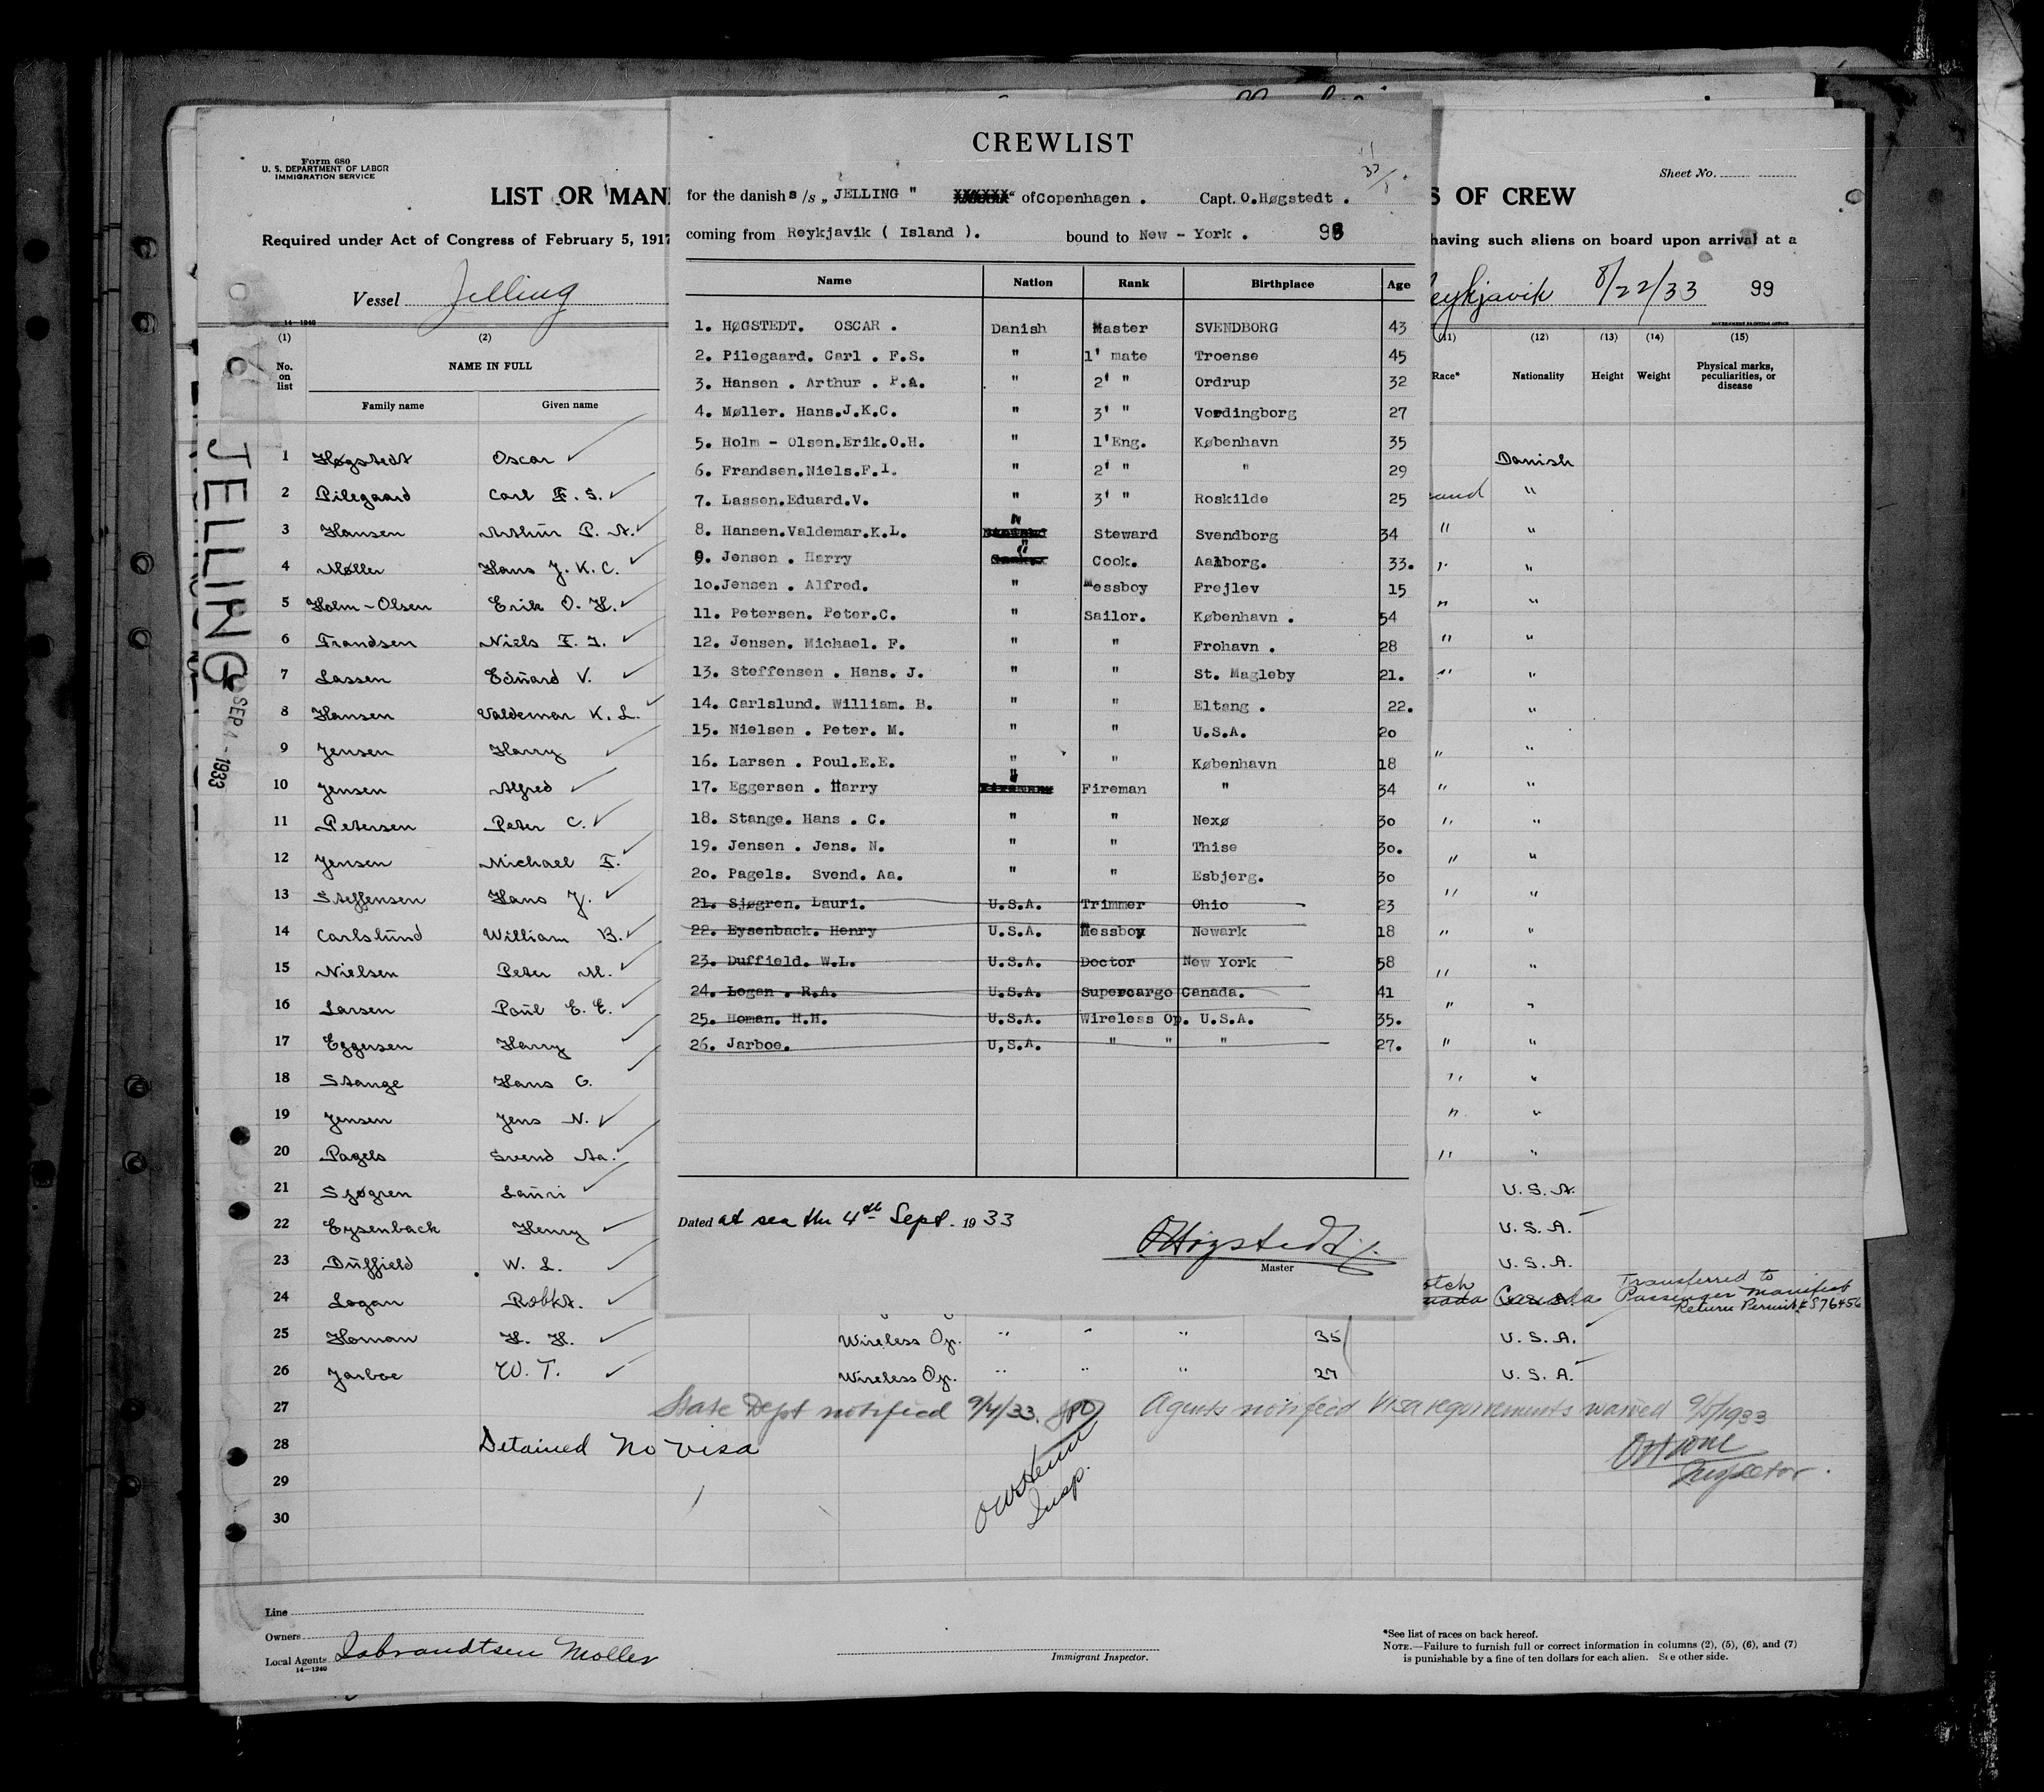 Form 680
U. S. DEPARTMENT OF LABOR
IMMIGRATION SERVICE
Sheet No.
LIST OR MANI
S OF CREW
Required under Act of Congress of February 5, 1917
having such aliens on board upon arrival at a
Vessel Jelling
eykjavik 8/22/33 99
14-1240
GOVERNMENT PRINTING OFFICE
(1) (2) (11) (12) (13) (14) (15)
No. on list NAME IN FULL Race* Nationality Height Weight Physical marks, peculiarities, or disease
Family name Given name
JELLING
SEP 4 - 1933
1 Høgstedt Oscar ✓ Danish
2 Pilegaard Carl F. S. ✓ "
3 Hansen Arthur P. A. ✓ " "
4 Møller Hans J. K. C. ✓ " "
5 Holm-Olsen Erik O. H. ✓ " "
6 Frandsen Niels F. I. ✓ " "
7 Lassen Eduard V. ✓ " "
8 Hansen Valdemar K. L. ✓ "
9 Jensen Harry ✓ " "
10 Jensen Alfred ✓ " "
11 Petersen Peter C. ✓ " "
12 Jensen Michael F. ✓ " "
13 Steffensen Hans J. ✓ " "
14 Carlslund William B. ✓ " "
15 Nielsen Peter M. ✓ " "
16 Larsen Poul E. E. ✓ " "
17 Eggersen Harry ✓ " "
18 Stange Hans C. ✓ " "
19 Jensen Jens N. ✓ " "
20 Pagels Svend Aa. ✓ " "
21 Sjøgren Lauri ✓ U. S. A.
22 Eysenback Henry ✓ U. S. A.
23 Duffield W. L. ✓ U. S. A.
24 Logan Robt A. ✓ otch nada Canada Transferred to Passenger Manifest Return Permit # 876456
25 Homan H. H. ✓ Wireless Op. " " " 35 U. S. A.
26 Jarboe W. T. ✓ Wireless Op. " " " 27 U. S. A.
27 State Dept notified 9/4/33. Agents notified Visa requirements waived 9/5/1933
28 Detained No Visa
Insp.
Inspector.
29
30
Line
Owners
Local Agents Isbrandtsen Moller
14-1240
Immigrant Inspector.
*See list of races on back hereof.
NOTE.—Failure to furnish full or correct information in columns (2), (5), (6), and (7)
is punishable by a fine of ten dollars for each alien. See other side.
CREWLIST
for the danish s/s „ JELLING " of Copenhagen . Capt. O.Høgstedt .
coming from Reykjavik ( Island ). bound to New - York . 98
Name Nation Rank Birthplace Age
1. HØGSTEDT. OSCAR . Danish Master SVENDBORG 43
2. Pilegaard. Carl . F.S. " 1' mate Troense 45
3. Hansen . Arthur . P.A. " 2' " Ordrup 32
4. Møller. Hans.J.K.C. " 3' " Vordingborg 27
5. Holm - Olsen.Erik.O.H. " 1'Eng. København 35
6. Frandsen.Niels.F.I. " 2' " " 29
7. Lassen.Eduard.V. " 3' " Roskilde 25
8. Hansen.Valdemar.K.L. " Steward Svendborg 34
9. Jensen . Harry " Cook. Aalborg. 33.
10.Jensen . Alfred. " Messboy Frejlev 15
11. Petersen. Peter.C. " Sailor. København . 54
12. Jensen. Michael. F. " " Frohavn . 28
13. Steffensen . Hans. J. " " St. Magleby 21.
14. Carlslund. William. B. " " Eltang . 22.
15. Nielsen . Peter. M. " " U.S.A. 20
16. Larsen . Poul.E.E. " " København 18
17. Eggersen . Harry " Fireman " 34
18. Stange. Hans . C. " " Nexø 30
19. Jensen . Jens. N. " " Thise 30.
20. Pagels. Svend. Aa. " " Esbjerg. 30
21. Sjøgren. Lauri. U.S.A. Trimmer Ohio 23
22. Eysenback. Henry U.S.A. Messboy Newark 18
23. Duffield. W.L. U.S.A. Doctor New York 58
24. Logan . R.A. U.S.A. Supercargo Canada. 41
25. Homan. H.H. U.S.A. Wireless Op. U.S.A. 35.
26. Jarboe. U,S.A. " " " 27.
Dated at sea the 4th Sept. 1933
OHøgstedt
Master